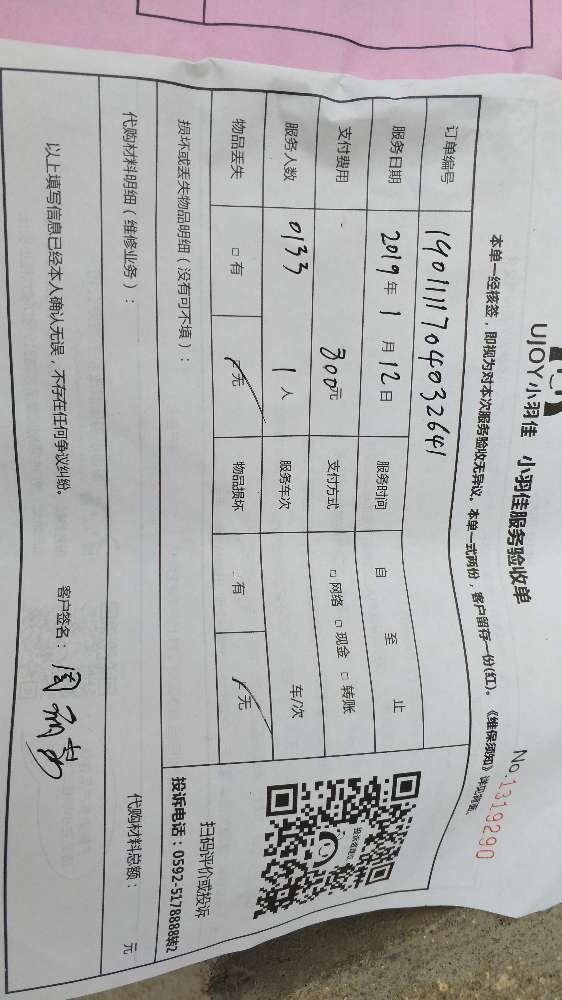 UJOY小羽佳 小羽佳服务验收单
No.1319290
本单一经核签，即视为对本次服务验收无异议。本单一式两份，客户留存一份(红)。《维保须知》详见背面。
订单编号 190111170403264​1
服务日期 2019年1月12日 服务时间 自 至 止
支付费用 300元 支付方式 □网络 □现金 □转账
服务人数 0133 1人 服务车次 车/次
物品丢失 □有 □无 物品损坏 □有 □无
损坏或丢失物品明细（没有可不填）：
扫码评价或投诉
投诉电话：0592-5178888转2
代购材料明细（维修业务）： 代购材料总额： 元
以上填写信息已经本人确认无误，不存在任何争议纠纷。 客户签名：